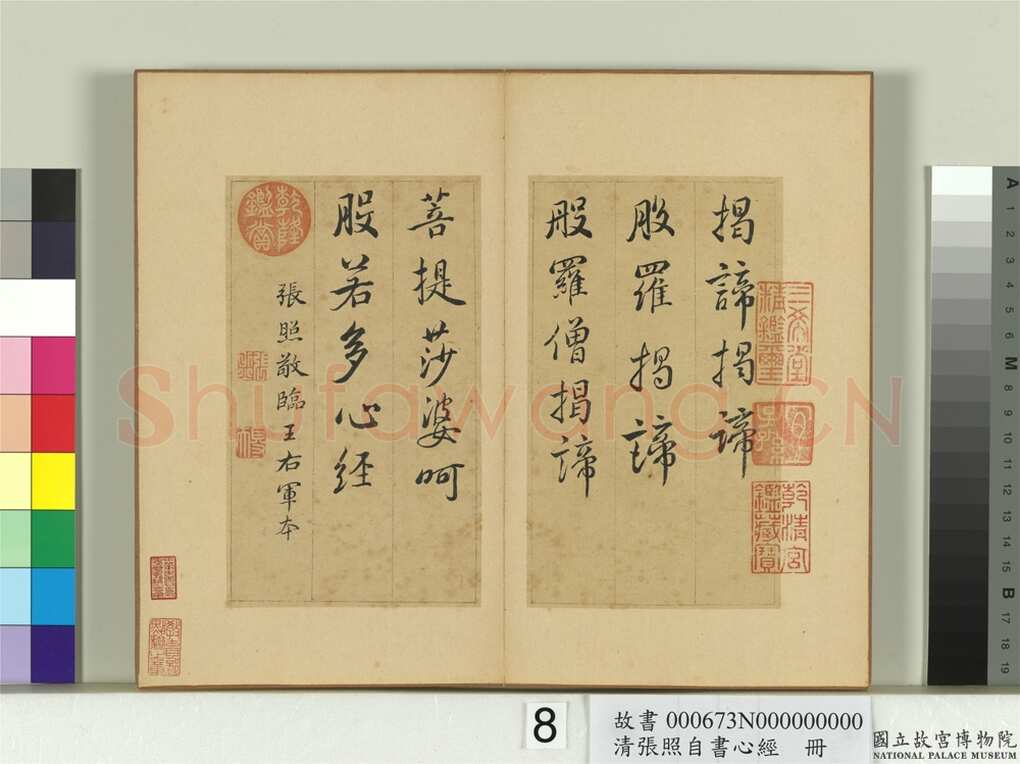 揭諦揭諦
般羅揭諦
般羅僧揭諦
菩提莎婆呵
般若多心經
張照敬臨王右軍本
三希堂精鑑璽
宜子孫
乾清宮鑑藏寶
乾隆鑑賞
Shufawang.CN
8
故書 000673N000000000
清張照自書心經 冊
國立故宮博物院
NATIONAL PALACE MUSEUM
A 1 2 3 4 5 6 M 8 9 10 11 12 13 14 15 B 17 18 19